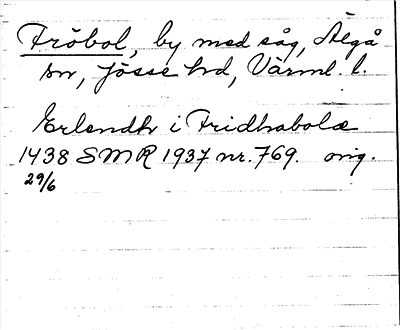 Fröbol, by med såg, Älgå
sn, Jösse hd, Värml. l.
Erlendh i Fridhabolæ
1438 SMR 1937 nr. 769. orig.
29/6